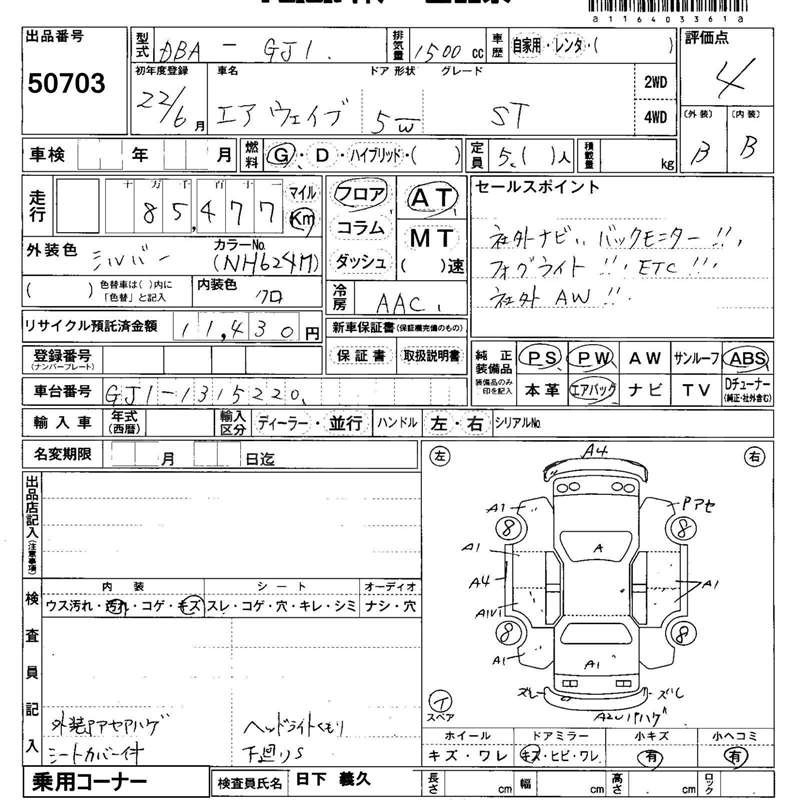 a116403361a
出品番号 50703
型式 DBA - GJ1 排気量 1500 cc 車歴 自家用・レンタ・( ) 評価点 4
初年度登録 22/6月 車名 エアウェイブ ドア 形状 5W グレード ST 2WD 4WD
(外装) B (内装) B
車検 年 月 燃料 G・D・ハイブリッド・( ) 定員 5.( )人 積載量 kg
走行 十万千百十一 85,477 マイル Km
フロア コラム ダッシュ AT MT ( )速
セールスポイント
社外ナビ!! バックモニター!!
フォグライト!! ETC!!
社外AW!!
外装色 シルバー カラーNo. (NH624M)
( ) 色替車は( )内に「色替」と記入 内装色 クロ
冷房 AAC
リサイクル預託済金額 11,430円
新車保証書(保証継続備のもの)
保証書 取扱説明書
登録番号 (ナンバープレート)
純正装備品 装備品のみ印を記入 PS PW AW サンルーフ ABS
本革 エアバック ナビ TV Dチューナー (純正・社外含む)
車台番号 GJ1-1315220
輸入車 年式(西暦) 輸入区分 ディーラー・並行 ハンドル 左・右 シリアルNo.
名変期限 月 日迄
出品店記入(注意事項)
左 右
A4
A1 Pアセ
8 8
A1 A
A4 A1
A1V1
8 8
A1
ズレ ズレ
A2Uハゲ
イ スペア
検査員記入
内装 シート オーディオ
ウス汚れ・汚れ・コゲ・キズ スレ・コゲ・穴・キレ・シミ ナシ・穴
外装Pアセハゲ ヘッドライトくもり
シートカバー付 下廻りS
ホイール ドアミラー 小キズ 小ヘコミ
キズ・ワレ キズ・ヒビ・ワレ 有 有
乗用コーナー 検査員氏名 日下 義久 長さ cm 幅 cm 高さ cm ロック